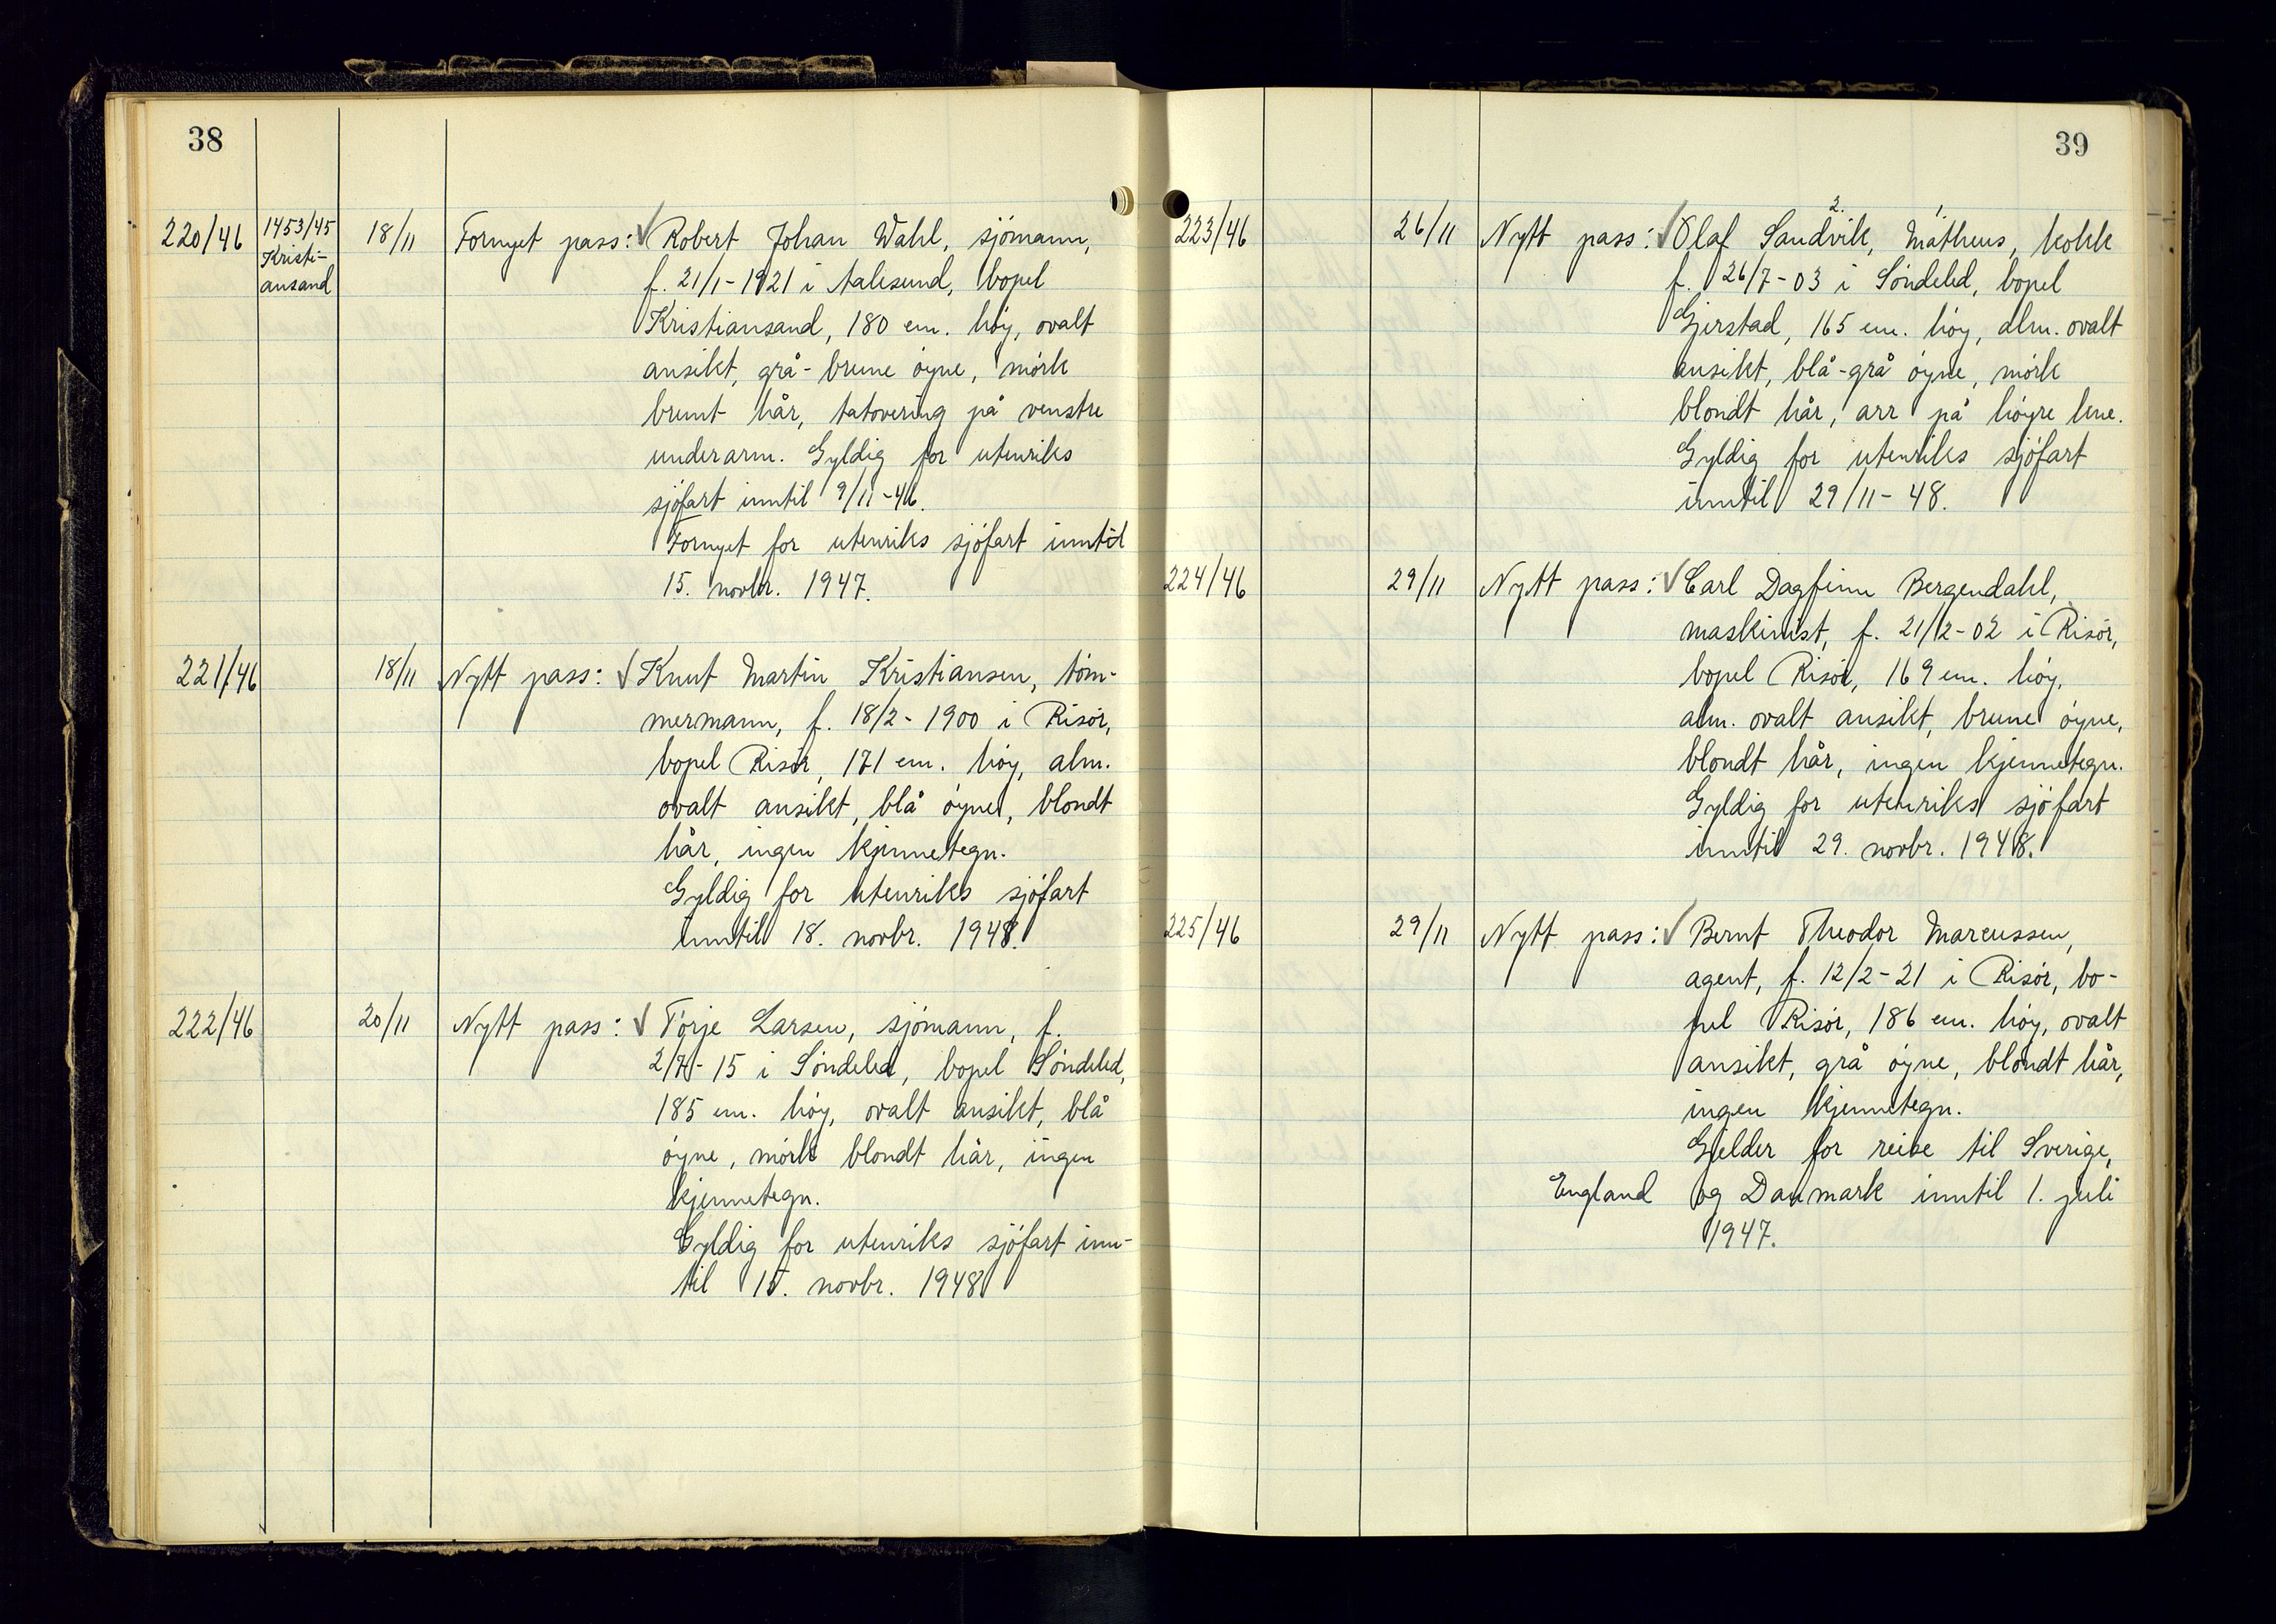 38
220/46 1453/45 Kristi-ansand 18/11 Fornyet pass: √ Robert Johan Wahl, sjömann,
f. 21/1-1921 i Aalesund, bopel
Kristiansand, 180 cm. höy, ovalt
ansikt, grå-brune öyne, mörk
brunt hår, tatovering på venstre
underarm. Gyldig for utenriks
sjöfart inntil 9/11-46.
Fornyet for utenriks sjöfart inntil
15. novbr. 1947.
221/46 18/11 Nytt pass: √ Knut Martin Kristiansen, töm-
mermann, f. 18/2-1900 i Risör,
bopel Risör, 171 cm. höy, alm.
ovalt ansikt, blå öyne, blondt
hår, ingen kjennetegn.
Gyldig for utenriks sjöfart
inntil 18. novbr. 1948.
222/46 20/11 Nytt pass: √ Törje Larsen, sjömann, f.
2/7-15 i Söndeled, bopel Söndeled,
185 cm. höy, ovalt ansikt, blå
öyne, mörk blondt hår, ingen
kjennetegn.
Gyldig for utenriks sjöfart inn-
til 15. novbr. 1948
39
2. 1.
223/46 26/11 Nytt pass: √ Olaf Sandvik, Matheus, kokk
f. 26/7-03 i Söndeled, bopel
Gjerstad, 165 cm. höy, alm. ovalt
ansikt, blå-grå öyne, mörk
blondt hår, arr på höyre kne.
Gyldig for utenriks sjöfart
inntil 29/11-48.
224/46 29/11 Nytt pass: √ Carl Dagfinn Bergendahl,
maskinist, f. 21/12-02 i Risör,
bopel Risör, 169 cm. höy,
alm. ovalt ansikt, brune öyne,
blondt hår, ingen kjennetegn.
Gyldig for utenriks sjöfart
inntil 29. novbr. 1948.
225/46 29/11 Nytt pass: √ Bernt Theodor Marcussen,
agent, f. 12/2-21 i Risör, bo-
pel Risör, 186 cm. höy, ovalt
ansikt, grå öyne, blondt hår,
ingen kjennetegn.
Gjelder for reise til Sverige,
England og Danmark inntil 1. juli
1947.